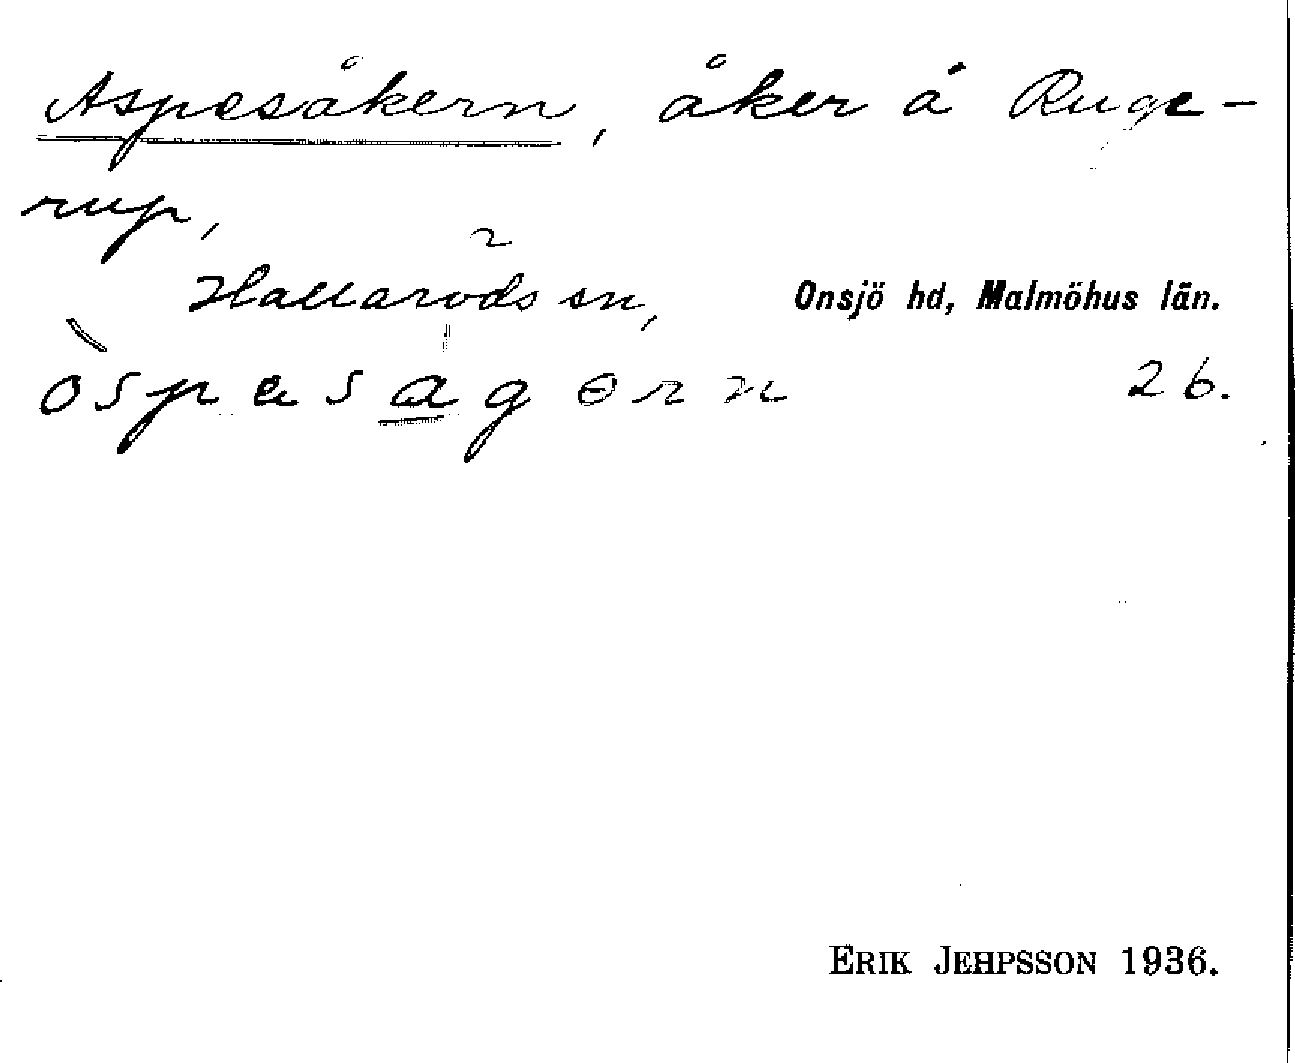 Aspesåkern, åker å Ruge-
rup,
Hallaröds sn, Onsjö hd, Malmöhus län.
òspasagərn 26.
ERIK JEHPSSON 1936.